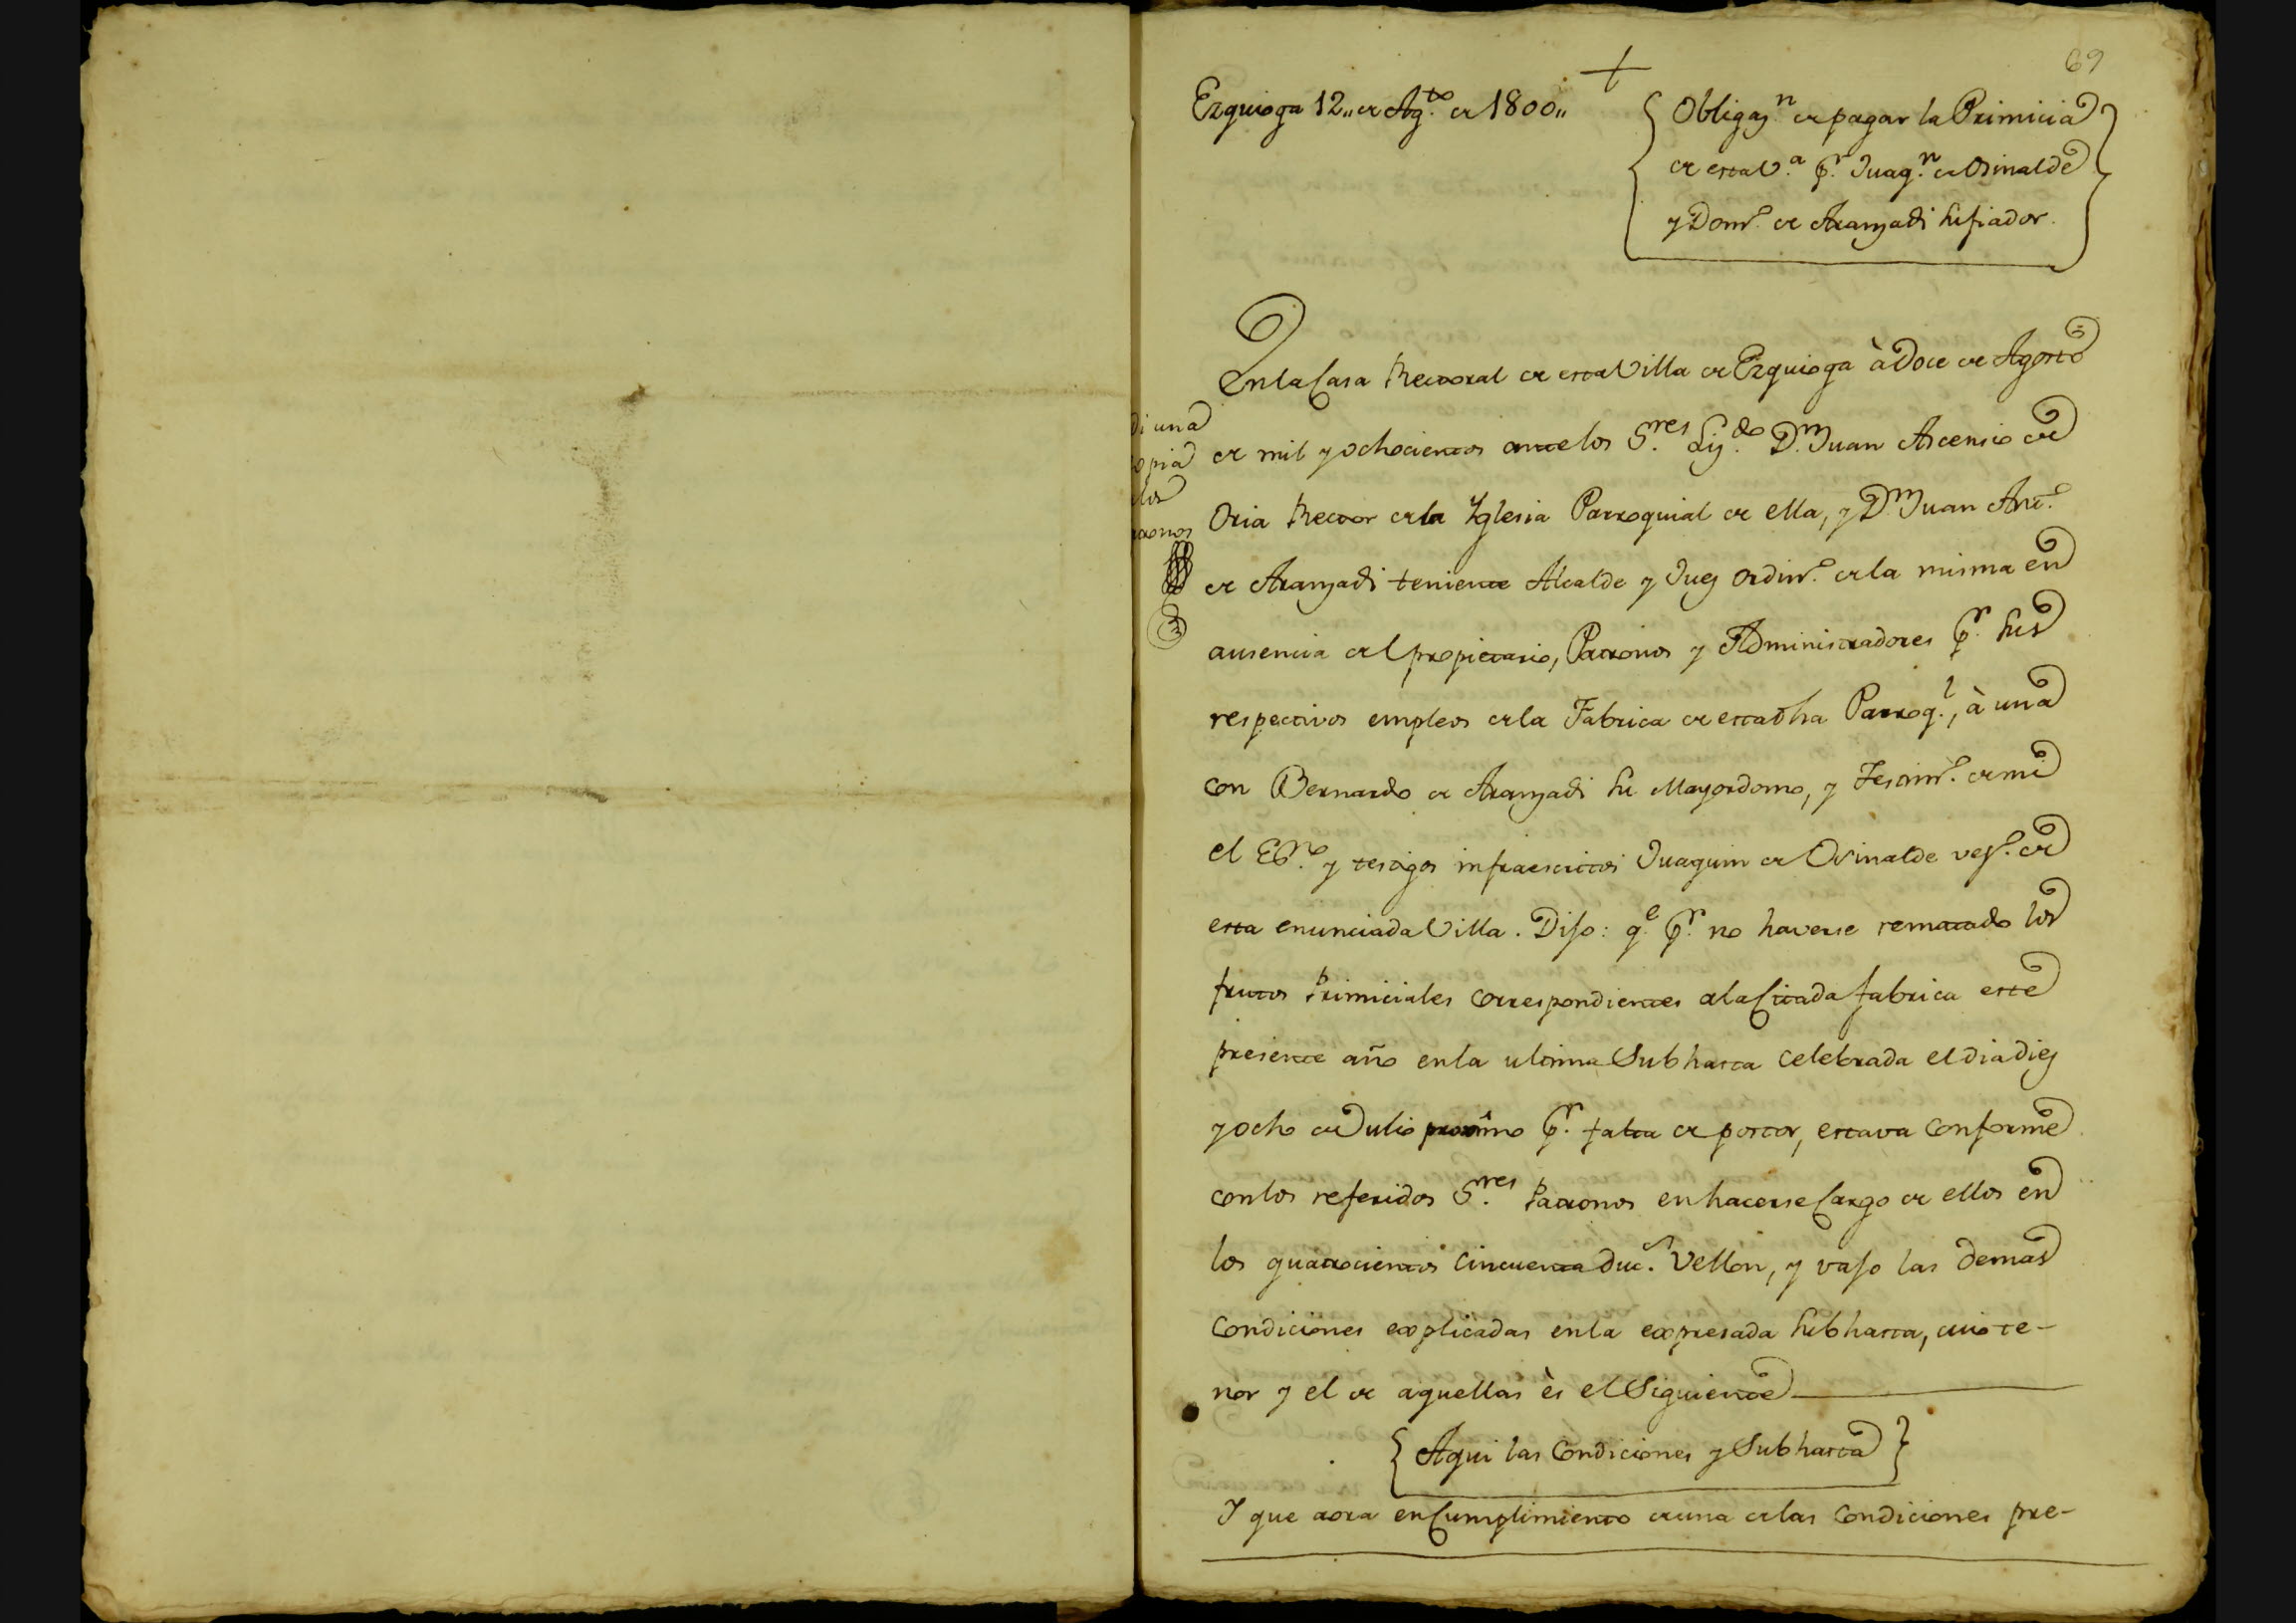 69
+
Ezquioga 12,, de Ag.to de 1800,,
Obligaz.n de pagar la Primicia
de esta V.a p.r Juaq.n de Osinalde
y Dom.o de Aranzadi su fiador.
En la Casa Rectoral de esta Villa de Ezquioga à doce de Agosto
de mil y ochocientos ante los S.res Liz.do D.n Juan Ascensio de
Oria Rector de la Yglesia Parroquial de ella, y D.n Juan Ant.o
de Aranzadi teniente Alcalde y Juez ordin.o de la misma en
ausencia del propietario, Patronos y Administradores p.r sus
respectivos empleos de la Fabrica de esta dha Parroq.l, à una
con Bernardo de Aranzadi su Mayordomo, y Testim.o de mi
el Es.no y testigos infraescritos Juaquin de Osinalde vez.o de
esta enunciada Villa. Dijo: q.e p.r no haverse rematado los
frutos Primiciales correspondientes a la Citada fabrica este
presente año en la ultima Subhasta celebrada el dia diez
y ocho de Julio proximo p.r falta de postor, estava conforme
con los referidos S.res Patronos en hacerse Cargo de ellos en
los quatrocientos cincuenta duc.s Vellon, y vajo las demas
condiciones explicadas en la expresada subhasta, cuio te-
nor y el de aquellas ès el Siguiente
Aqui las Condiciones y Subhasta
Y que aora en Cumplimiento de una de las Condiciones pre-
di una
opia
los
tronos